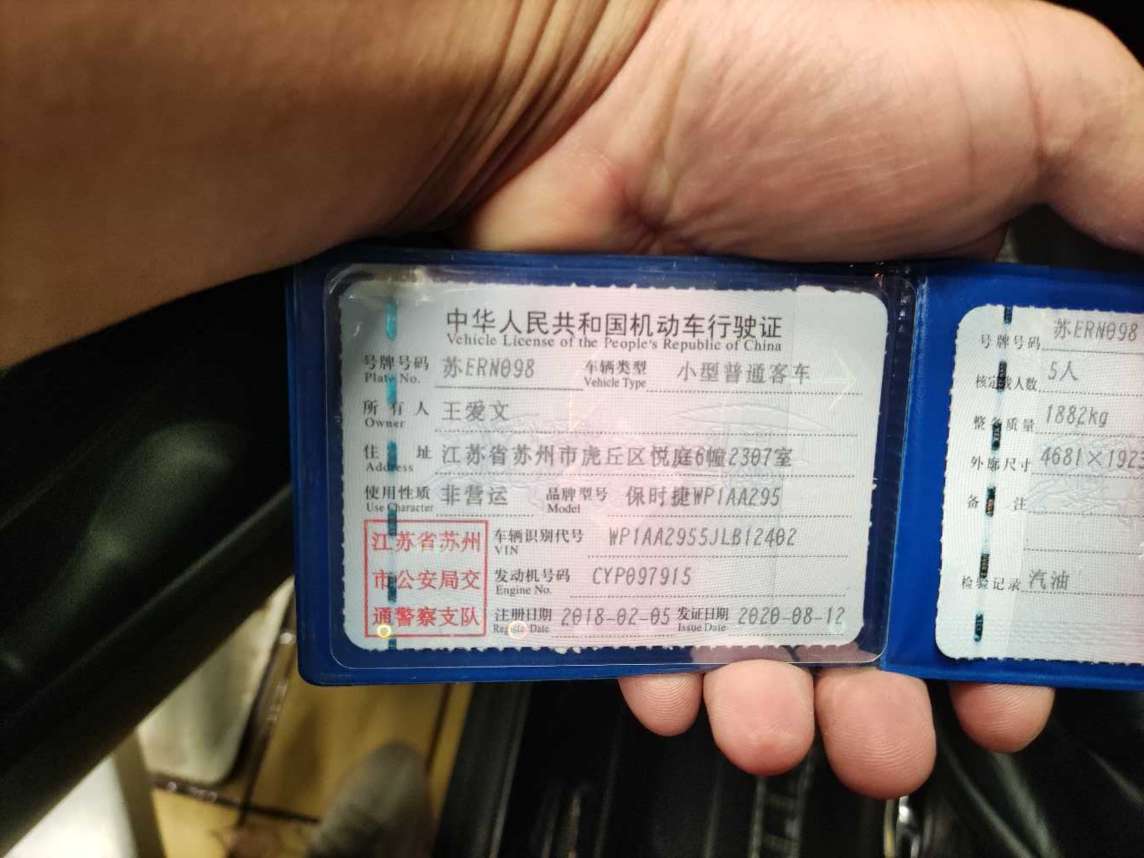 中华人民共和国机动车行驶证
Vehicle License of the People's Republic of China
号牌号码 苏ERN098 车辆类型 小型普通客车
Plate No. Vehicle Type
所有人 王爱文
Owner
住址 江苏省苏州市虎丘区悦庭6幢2307室
Address
使用性质 非营运 品牌型号 保时捷WP1AA295
Use Character Model
江苏省苏州
市公安局交
通警察支队
车辆识别代号 WP1AA2955JLB12402
VIN
发动机号码 CYP097915
Engine No.
注册日期 2018-02-05 发证日期 2020-08-12
Register Date Issue Date
号牌号码 苏ERN098
核定载人数 5人
整备质量 1882kg
外廓尺寸 4681×1923
备注
检验记录 汽油